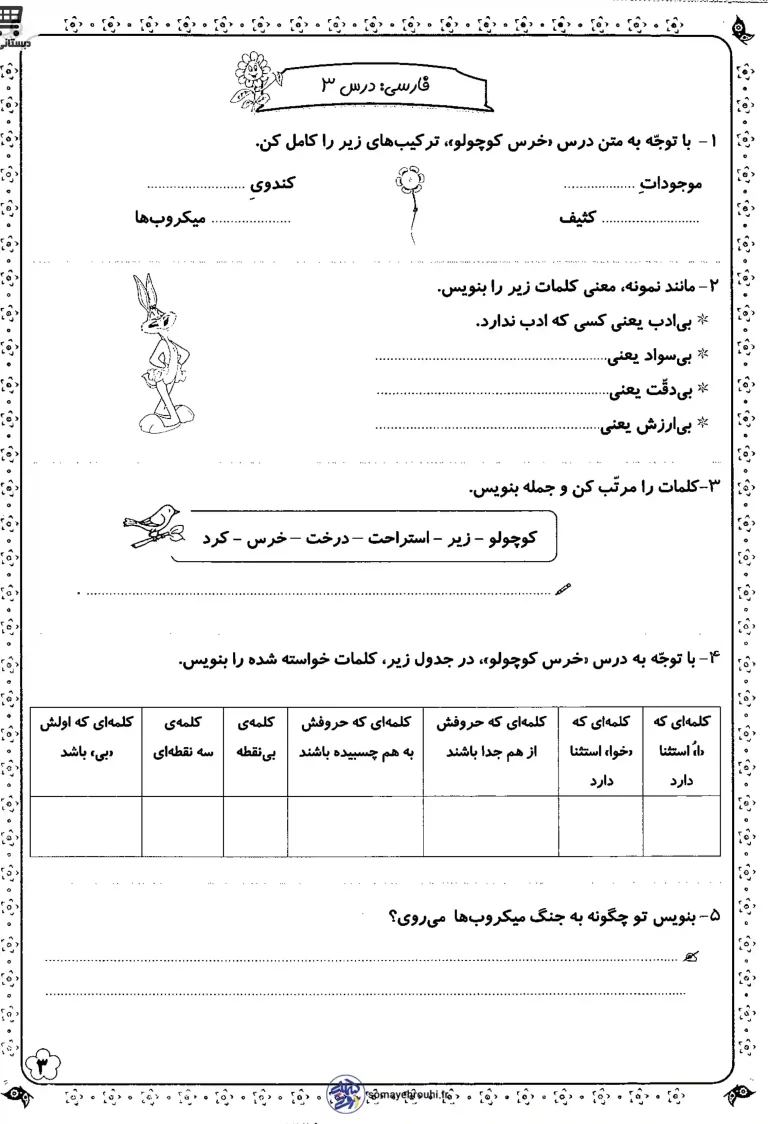 دبستانی
فارسی: درس ۳
۱- با توجّه به متن درس «خرس کوچولو»، ترکیب‌های زیر را کامل کن.
موجوداتِ .................. کندویِ ........................
......................... کثیف .................... میکروب‌ها
۲- مانند نمونه، معنی کلمات زیر را بنویس.
* بی‌ادب یعنی کسی که ادب ندارد.
* بی‌سواد یعنی..........................................................
* بی‌دقّت یعنی..........................................................
* بی‌ارزش یعنی........................................................
۳-کلمات را مرتّب کن و جمله بنویس.
کوچولو - زیر - استراحت - درخت - خرس - کرد
.................................................................................................................... .
۴- با توجّه به درس «خرس کوچولو»، در جدول زیر، کلمات خواسته شده را بنویس.
کلمه‌ای که «اُ» استثنا دارد
کلمه‌ای که «خوا» استثنا دارد
کلمه‌ای که حروفش از هم جدا باشند
کلمه‌ای که حروفش به هم چسبیده باشند
کلمه‌ی بی‌نقطه
کلمه‌ی سه نقطه‌ای
کلمه‌ای که اولش «بی» باشد
۵- بنویس تو چگونه به جنگ میکروب‌ها می‌روی؟
................................................................................................................................
................................................................................................................................
۳
somayehrouhi.ir